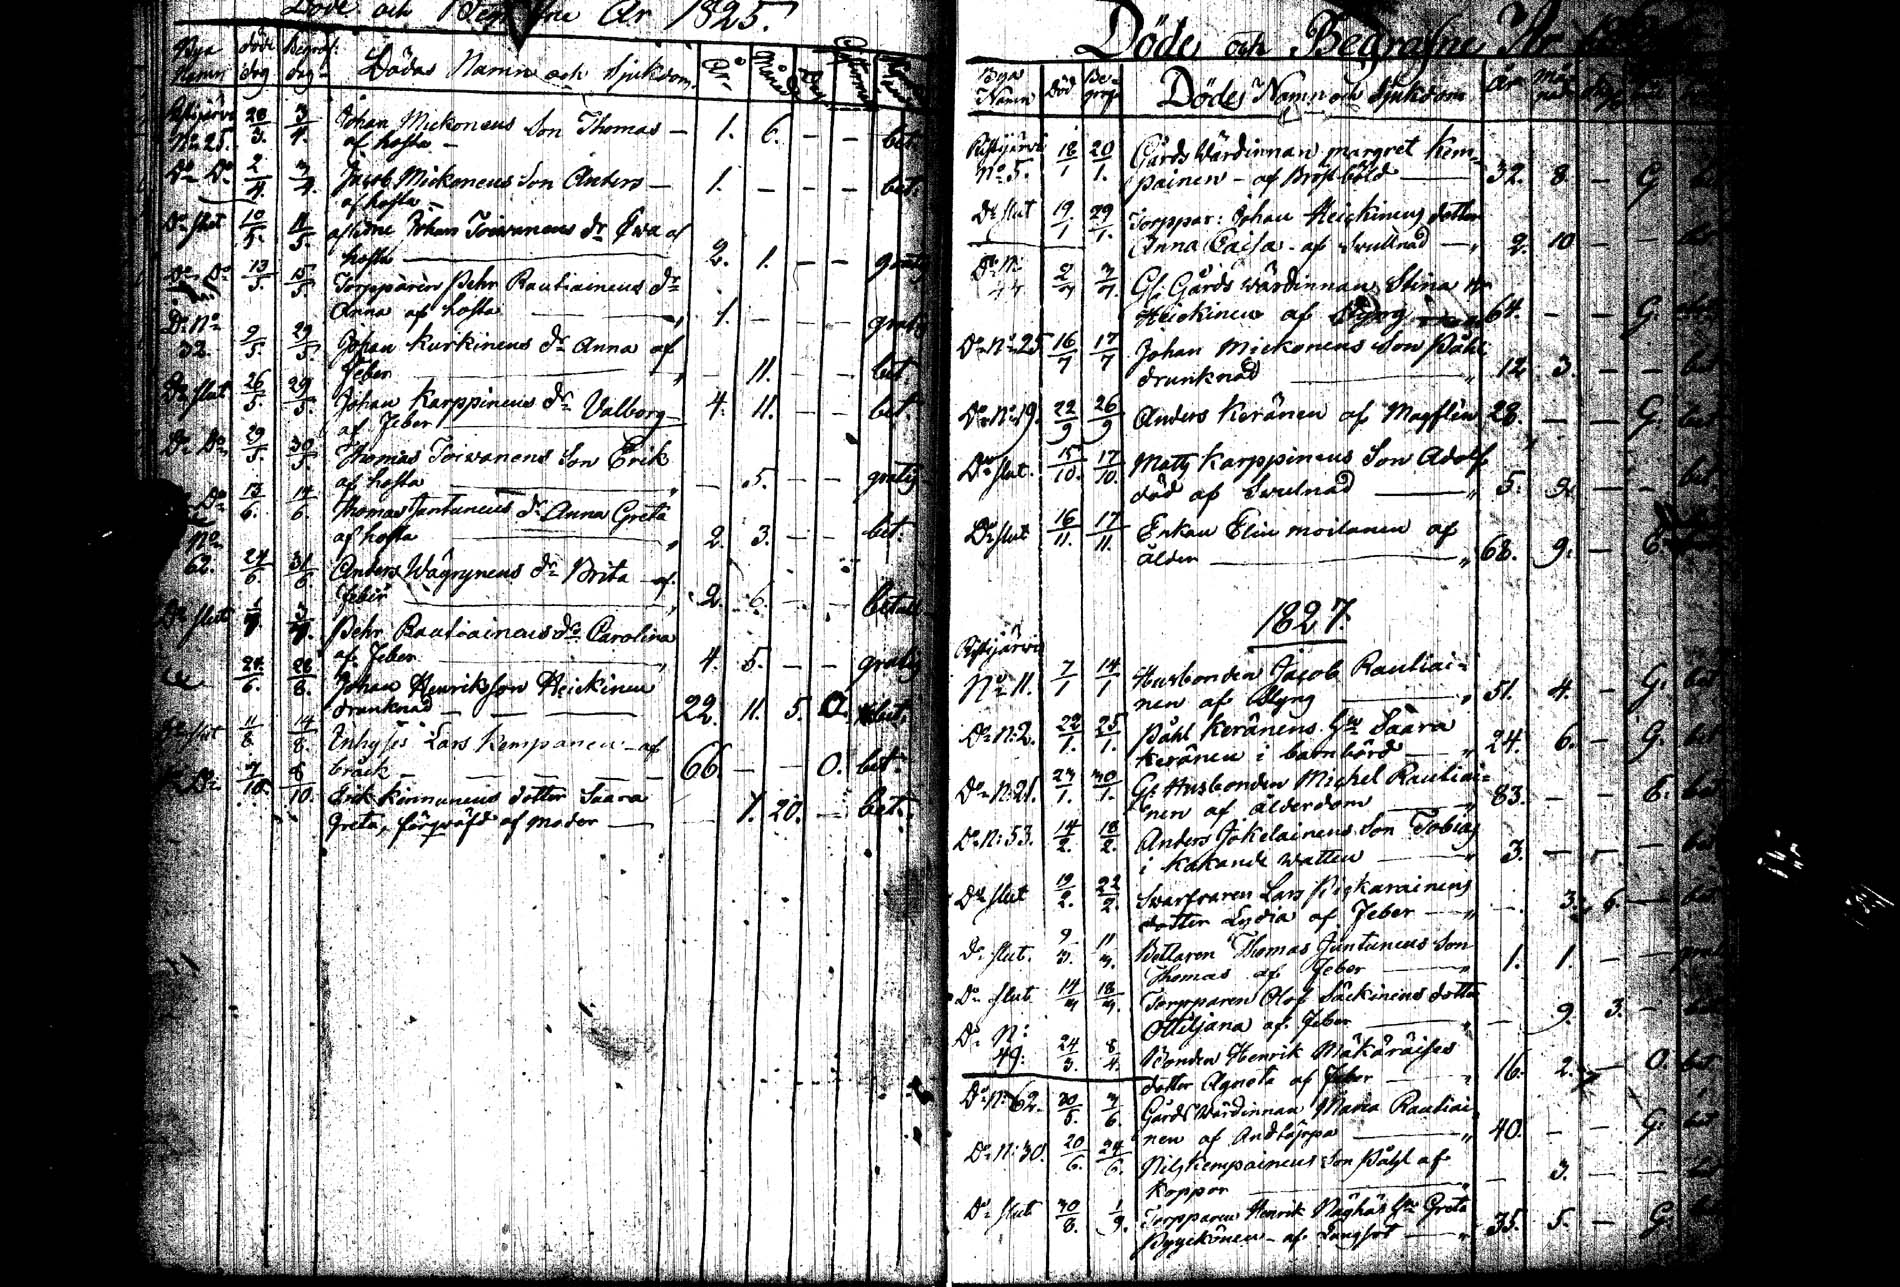 Döde och Begrafne År 1825.
Bya Namn döde dag Begraf: dag Dödas Namn och Sjukdom År Månad Dag
Ristijärvi 28/3. 3/4. Johan Mickonens Son Thomas — 1. 6. — — bet.
No 25. af hosta —
Do Do 2/4. 3/4. Jacob Mickonens Son Anders — 1. — — — bet.
af hosta —
Do slut 10/5. 11/5. aflidne Johan Toiwanens dr Ewa af
hosta — 2. 1. — — gratis
Do Do 13/5. 15/5. Torpparen Pehr Rautiainens dr
Anna af hosta — 1. — — — gratis
Do No 32. 9/5. 29/5. Johan Kurkinens dr Anna af
feber — — 11. — — bet.
Do slut 26/5. 29/5. Johan Karppinens dr Valborg — 4. 11. — — bet.
af feber
Do Do 29/5. 30/5. Thomas Toiwanens Son Erik
af hosta — — 5. — — gratis
Do 13/6. 14/6. Thomas Juntunens dr Anna Greta
af hosta — 2. 3. — — bet.
No 62. 24/6. 31/6 Anders Wäyrynens dr Brita af
feber — 2. 6. — — betalt
Do slut Pehr Rautiainens dr Carolina
af feber — 4. 5. — — gratis
28/8. Johan Henriksson Heickinen
drunknad — 22. 11. 5. O.
Do slut 11/8 14/8. Inhyses Lars Kempainen — af
bråck — 66. — — O. bet.
7/10. 8/10. Erik Kinnunens dotter Saara
Greta, förqwäfd af moder — — 1. 20. — bet.
Döde och Begrafne År
Bya Namn Död Begraf Dödes Namn och Sjukdom År Månad
Ristijärvi 18/1 20/1. Gårds Wärdinnan Margret Kem-
No 5. painen — af Bröstböld — 32. 8. — G
Do slut 19/1 29/1. Torppar: Johan Heickinens dotter
Anna Caisa — af Swullnad — 2. 10 — —
Do N: Gl. Gårds Wärdinnan Stina
Heickinen af — 64. — — G.
Do No 25 16/7 17/7 Johan Mickonens Son Påhl
drunknad — 12 3. — — bet
Do No 19. 22/9 26/9 Anders Keränen af Magplån 28. — — G. bet
Do slut. 15/10. 17/10. Matts Karppinens Son Adolf
död af Swulnad — 5. 9. — — bet.
Do slut 16/11. 17/11. Enkan Elin Moilanen af
ålder — 68. 9. —
1827.
Ristijärvi
No 11. 7/1 14/1 Husbonden Jacob Rautiai-
nen af Styng — 51. 4. — G. bet
Do N: 2. 22/1. 25/1. Påhl Keränens hu Saara
Keränen i barnbörd — 24. 6. — G. bet
Do N: 21. 23/1. 30/1. Gl. Husbonden Michel Rautiai-
nen af ålderdom — 83. — — E. bet
Do N: 53. 14/2. 18/2. Anders Jokelainens Son Tobias
i kokande watten — 3. — — — bet
Do slut 19/2. 22/2. Swarfvaren Lars Piskarainens
dotter Lydia af feber — — 3. 6. — bet
Do slut. 9/3. 11/3. Bettaren Thomas Juntunens Son
Thomas af feber — 1. 1. — —
Do slut 14/3 18/3. Torpparen Olof Säckinens dotter
Ottiljana af feber — — 9. 3. — bet
Do N: 49. 24/3. 8/4. Bonden Henrik Mäkäräises
dotter Agneta af feber — 16. 2. — O. bet
Do No 62. 30/5. 3/6. Gårds Wärdinnan Maria Rautiai-
nen af Andtäppa — 40. — — G. bet
Do N: 30. 20/6. 24/6. Nils Kempainens Son Påhl af
koppor — — 3. — — bet
Do slut 30/8. 1/9. Torpparen Henrik Näghäs hu Greta
Pyyckönen — af Lungsot — 35. 5. — G.